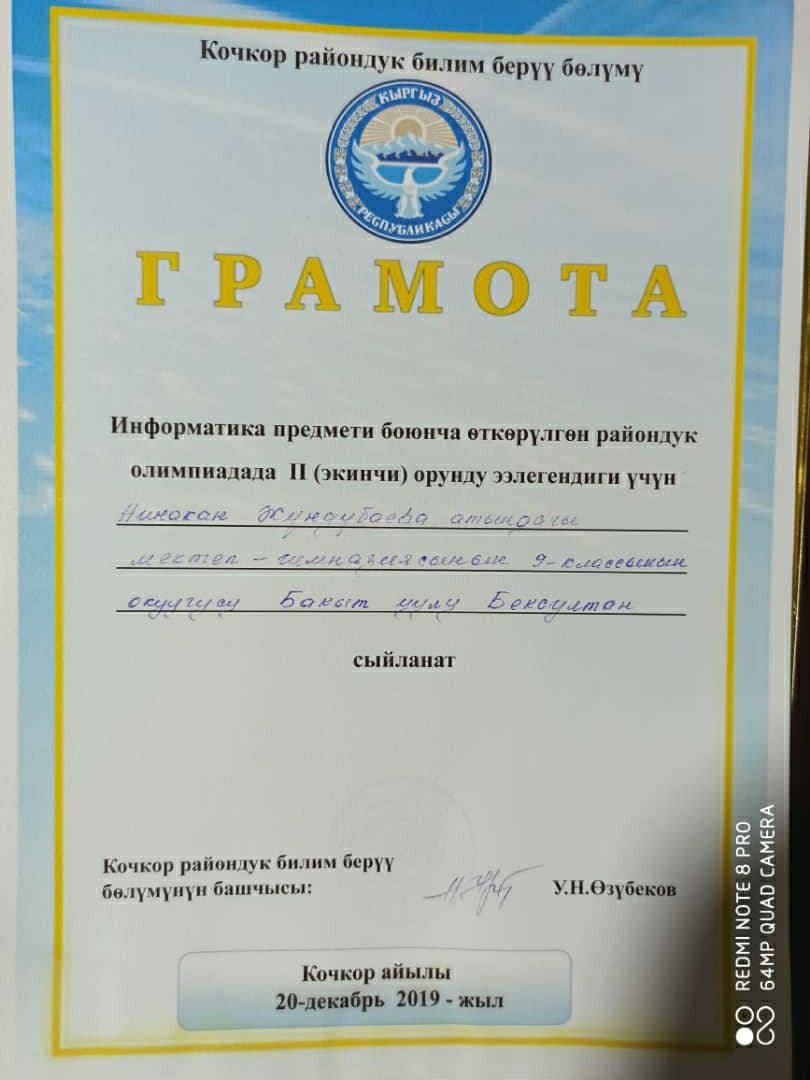 Кочкор райондук билим берүү бөлүмү
КЫРГЫЗ
РЕСПУБЛИКАСЫ
ГРАМОТА
Информатика предмети боюнча өткөрүлгөн райондук
олимпиадада II (экинчи) орунду ээлегендиги үчүн
Жунаубаева атындагы
мектеп – гимназиясынын 9-классынын
окуучусу Бакыт уулу Бексултан
сыйланат
Кочкор райондук билим берүү
бөлүмүнүн башчысы:
У.Н.Өзүбеков
Кочкор айылы
20-декабрь 2019 - жыл
REDMI NOTE 8 PRO
64MP QUAD CAMERA